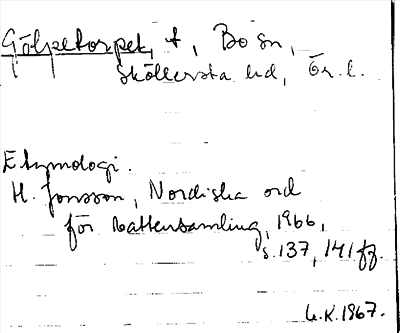 Gölpetorpet, t, Bo sn,
Sköllersta hd, Ör. l.
Etymologi.
H. Jonsson, Nordiska ord
för vattensamling, 1966,
s. 137, 141 ff.
1967.